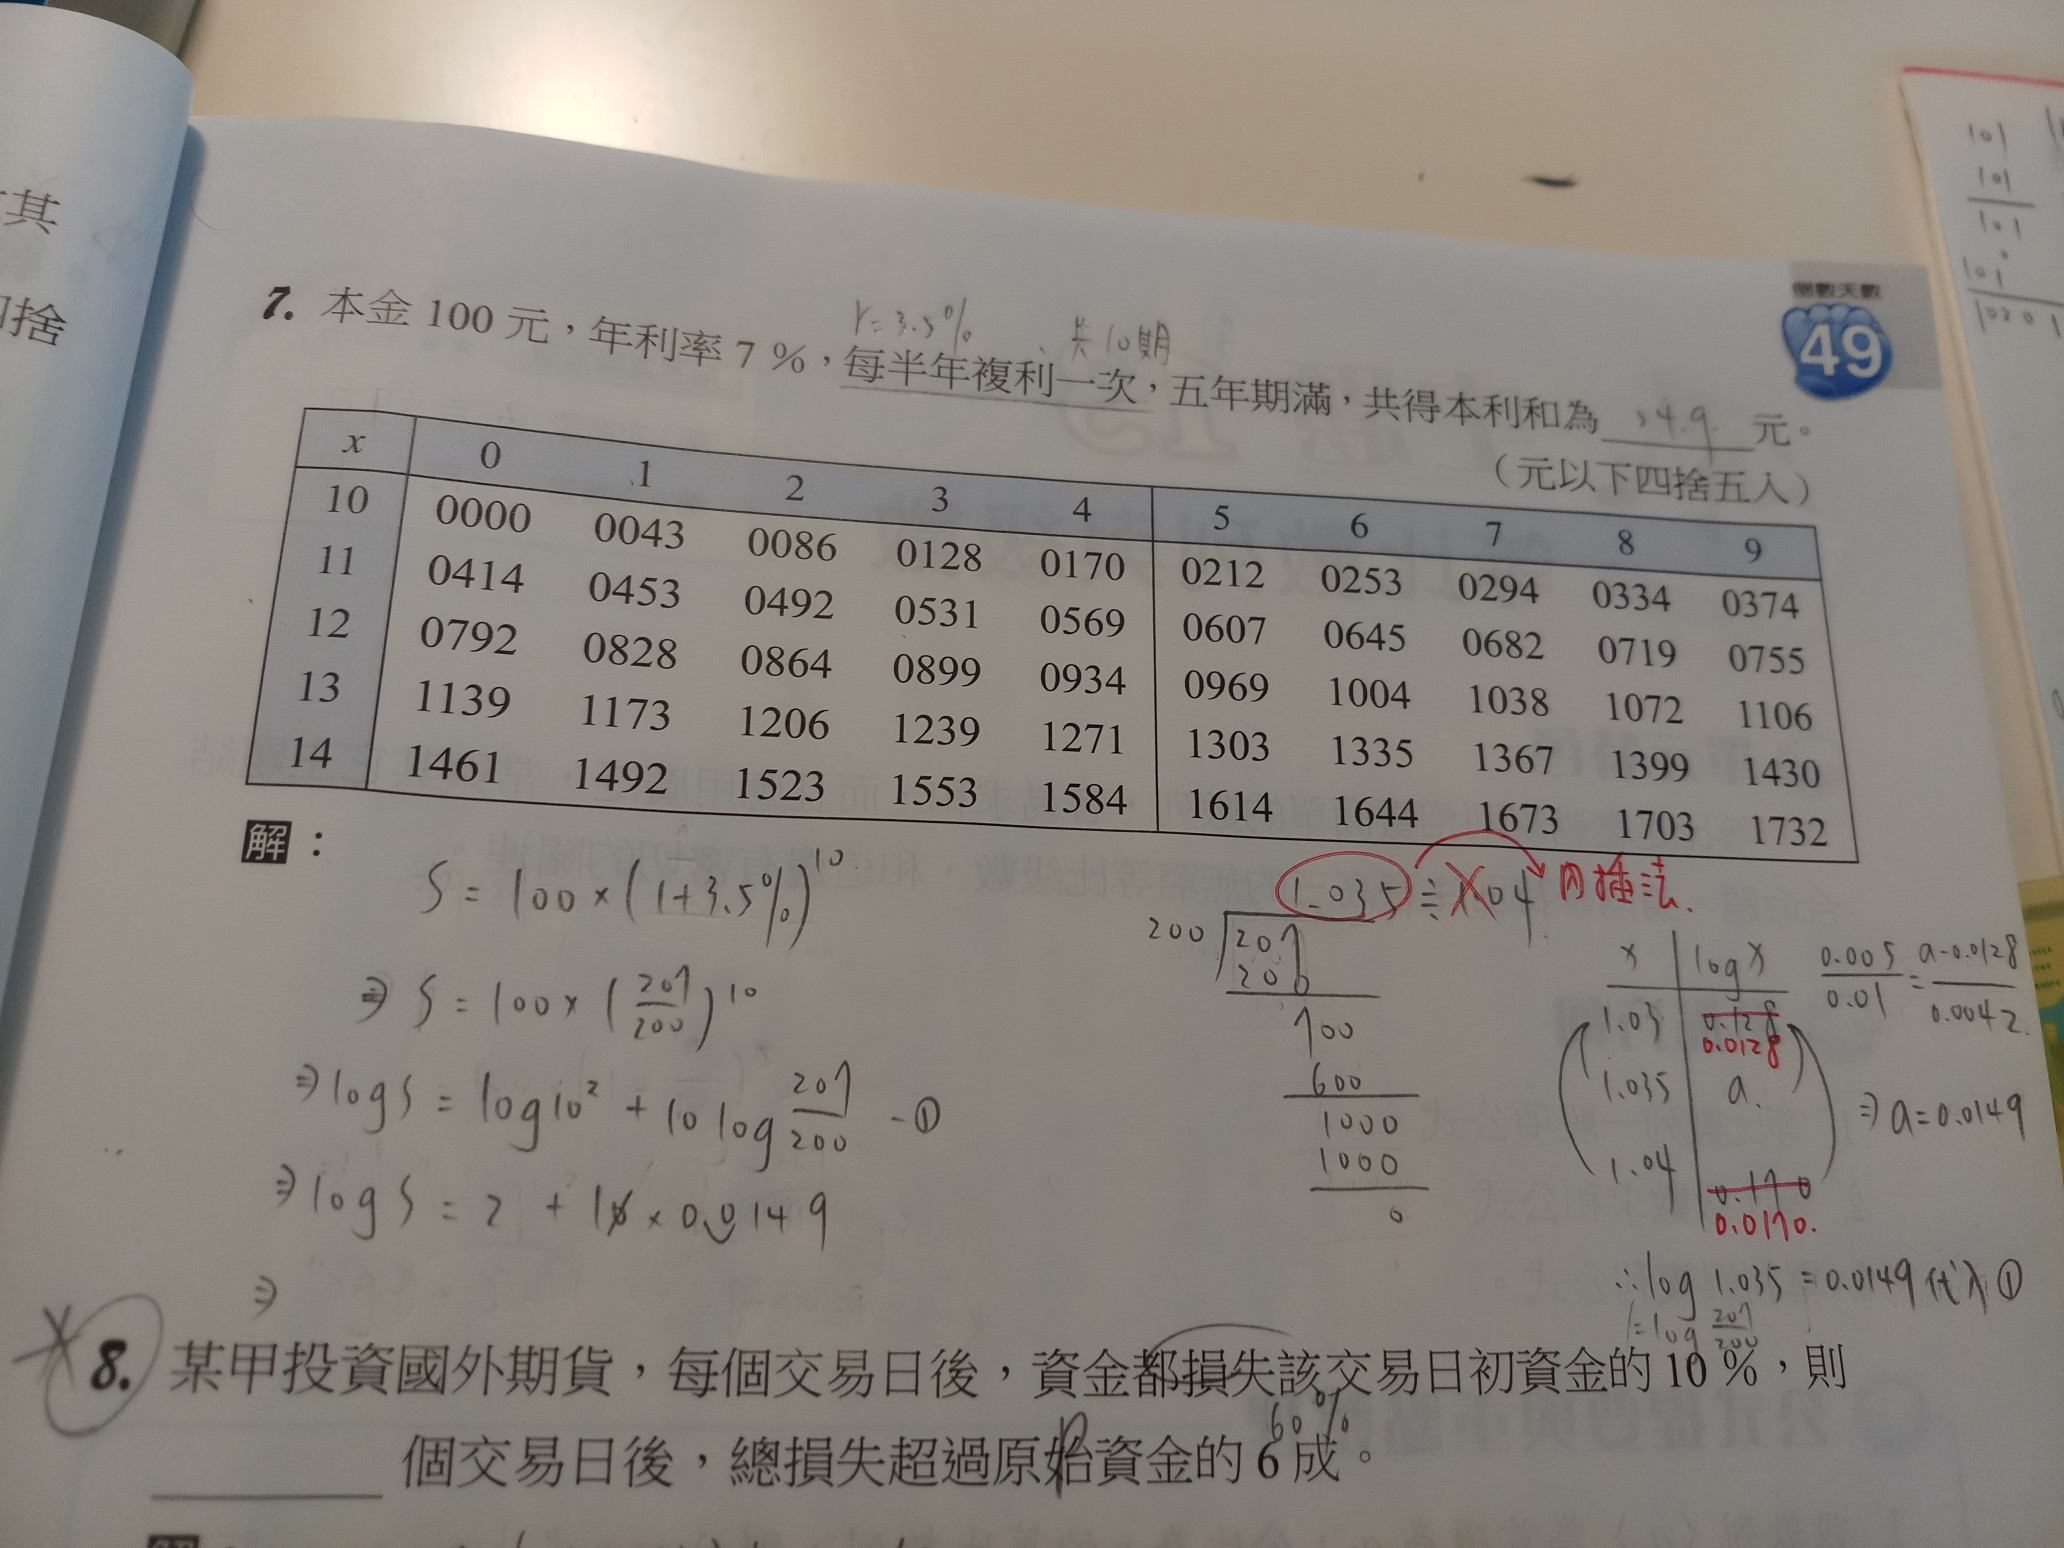 其
捨
倒數天數
49
101
101
101
101
10201
r=3.5%
共10期
7. 本金 100 元，年利率 7 %，每半年複利一次，五年期滿，共得本利和為 元。
（元以下四捨五入）
x 0 1 2 3 4 5 6 7 8 9
10 0000 0043 0086 0128 0170 0212 0253 0294 0334 0374
11 0414 0453 0492 0531 0569 0607 0645 0682 0719 0755
12 0792 0828 0864 0899 0934 0969 1004 1038 1072 1106
13 1139 1173 1206 1239 1271 1303 1335 1367 1399 1430
14 1461 1492 1523 1553 1584 1614 1644 1673 1703 1732
解：
S = 100 × (1+3.5%)^10
⇒ S = 100 × (207/200)^10
⇒ log S = log 10² + 10 log 207/200 -①
⇒ log S = 2 + 10 × 0.0149
⇒
1.035 ≒ 1.04 內插法.
200 207
200
700
600
1000
1000
0
x log x
1.03 0.128
0.0128
1.035 a.
1.04 0.170
0.0170.
0.005/0.01 = a-0.0128/0.0042.
⇒ a = 0.0149
∴ log 1.035 = 0.0149 代入①
= log 207/200
8. 某甲投資國外期貨，每個交易日後，資金都損失該交易日初資金的 10 %，則
60%
個交易日後，總損失超過原始資金的 6 成。
解